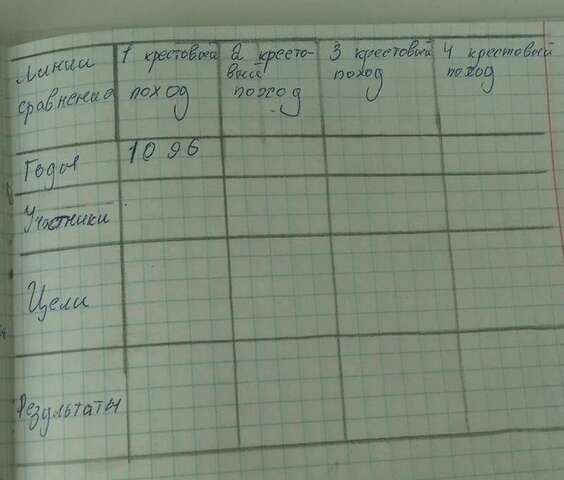 Линии сравнения
1 крестовый поход
2 кресто-
вый поход
3 крестовый поход
4 крестовый поход
Годы
1096
Участники
Цели
Результаты